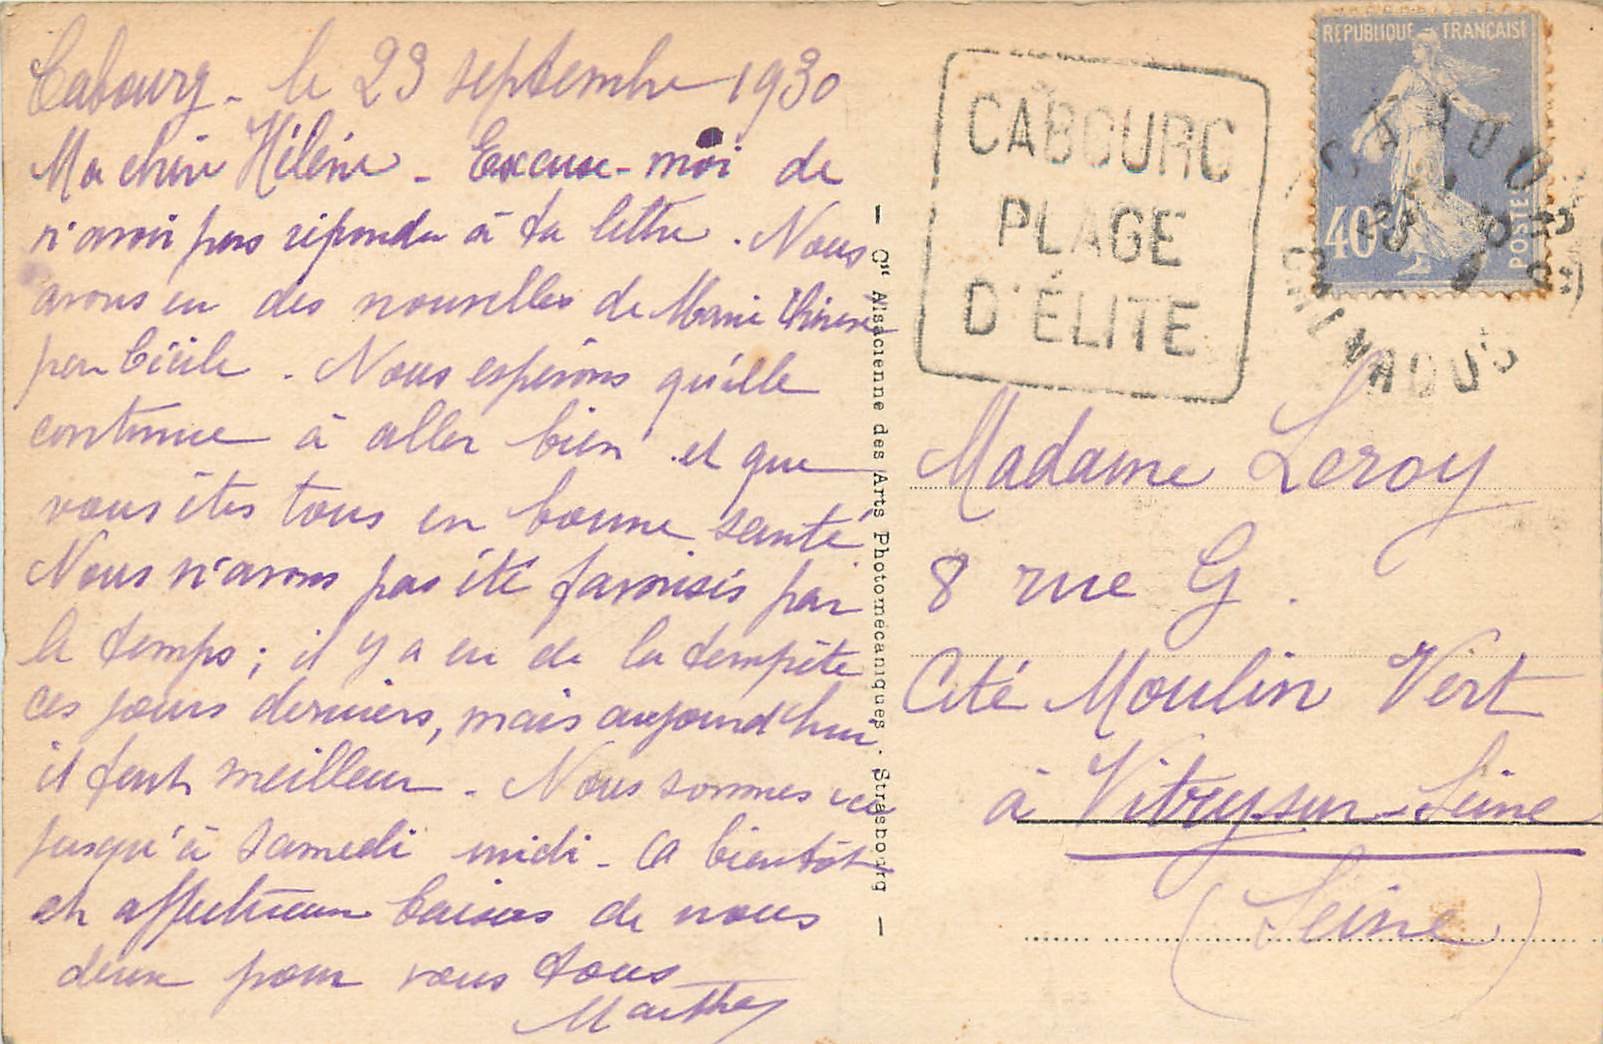 Cabourg - le 23 septembre 1930
Ma chère Hélène - Excuse-moi de
n'avoir pas répondu à ta lettre. Nous
avons eu des nouvelles de Marie Thérèse
par Cécile. Nous espérons qu'elle
continue à aller bien et que
vous êtes tous en bonne santé
Nous n'avons pas été favorisés par
le temps; il y a eu de la tempête
ces jours derniers, mais aujourd'hui
il fait meilleur. Nous sommes ici
jusqu'à samedi midi - A bientôt
et affectueux baisers de nous
deux pour vous tous
Marthe
— Cie Alsacienne des Arts Photomécaniques - Strasbourg —
CABOURG
PLAGE
D'ÉLITE
REPUBLIQUE FRANÇAISE
40c
POSTES
CABOURG
CALVADOS
Madame Leroy
8 rue G.
Cité Moulin Vert
à Vitry-sur-Seine
(Seine)